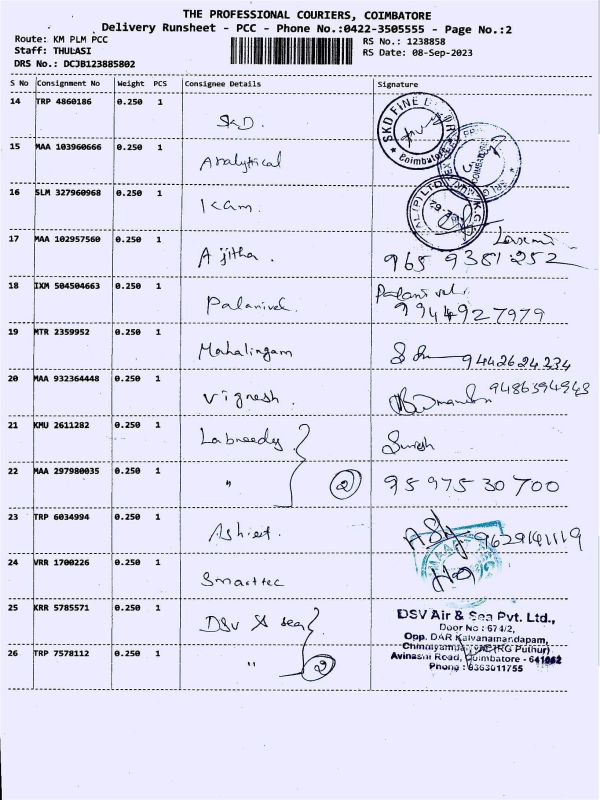 THE PROFESSIONAL COURIERS, COIMBATORE
Delivery Runsheet - PCC - Phone No.:0422-3505555 - Page No.:2
Route: KM PLM PCC
Staff: THULASI
DRS No.: DCJB123885802
RS No.: 1238858
RS Date: 08-Sep-2023
S No Consignment No Weight PCS Consignee Details Signature
14 TRP 4860186 0.250 1 SKD. SKD FINE Coimbatore
15 MAA 103960666 0.250 1 Analytical COIMBATORE
16 SLM 327960968 0.250 1 Kam.
17 MAA 102957560 0.250 1 Ajitha. 965 9381 252
18 IXM 504504663 0.250 1 Palanivel. Palanivel. 9944927979
19 MTR 2359952 0.250 1 Mahalingam 9442624234
20 MAA 932364448 0.250 1 Vignesh. 9486394943
21 KMU 2611282 0.250 1 Labneedy Suresh
22 MAA 297980035 0.250 1 " 2 95975 30700
23 TRP 6034994 0.250 1 9629141119
24 VRR 1700226 0.250 1 Smarttec
25 KRR 5785571 0.250 1 DSV & Sea
26 TRP 7578112 0.250 1 " 2
DSV Air & Sea Pvt. Ltd.,
Door No : 674/2,
Opp. DAR Kalyanamandapam,
Avinashi Road, Coimbatore - 641062
Phone : 8363011755